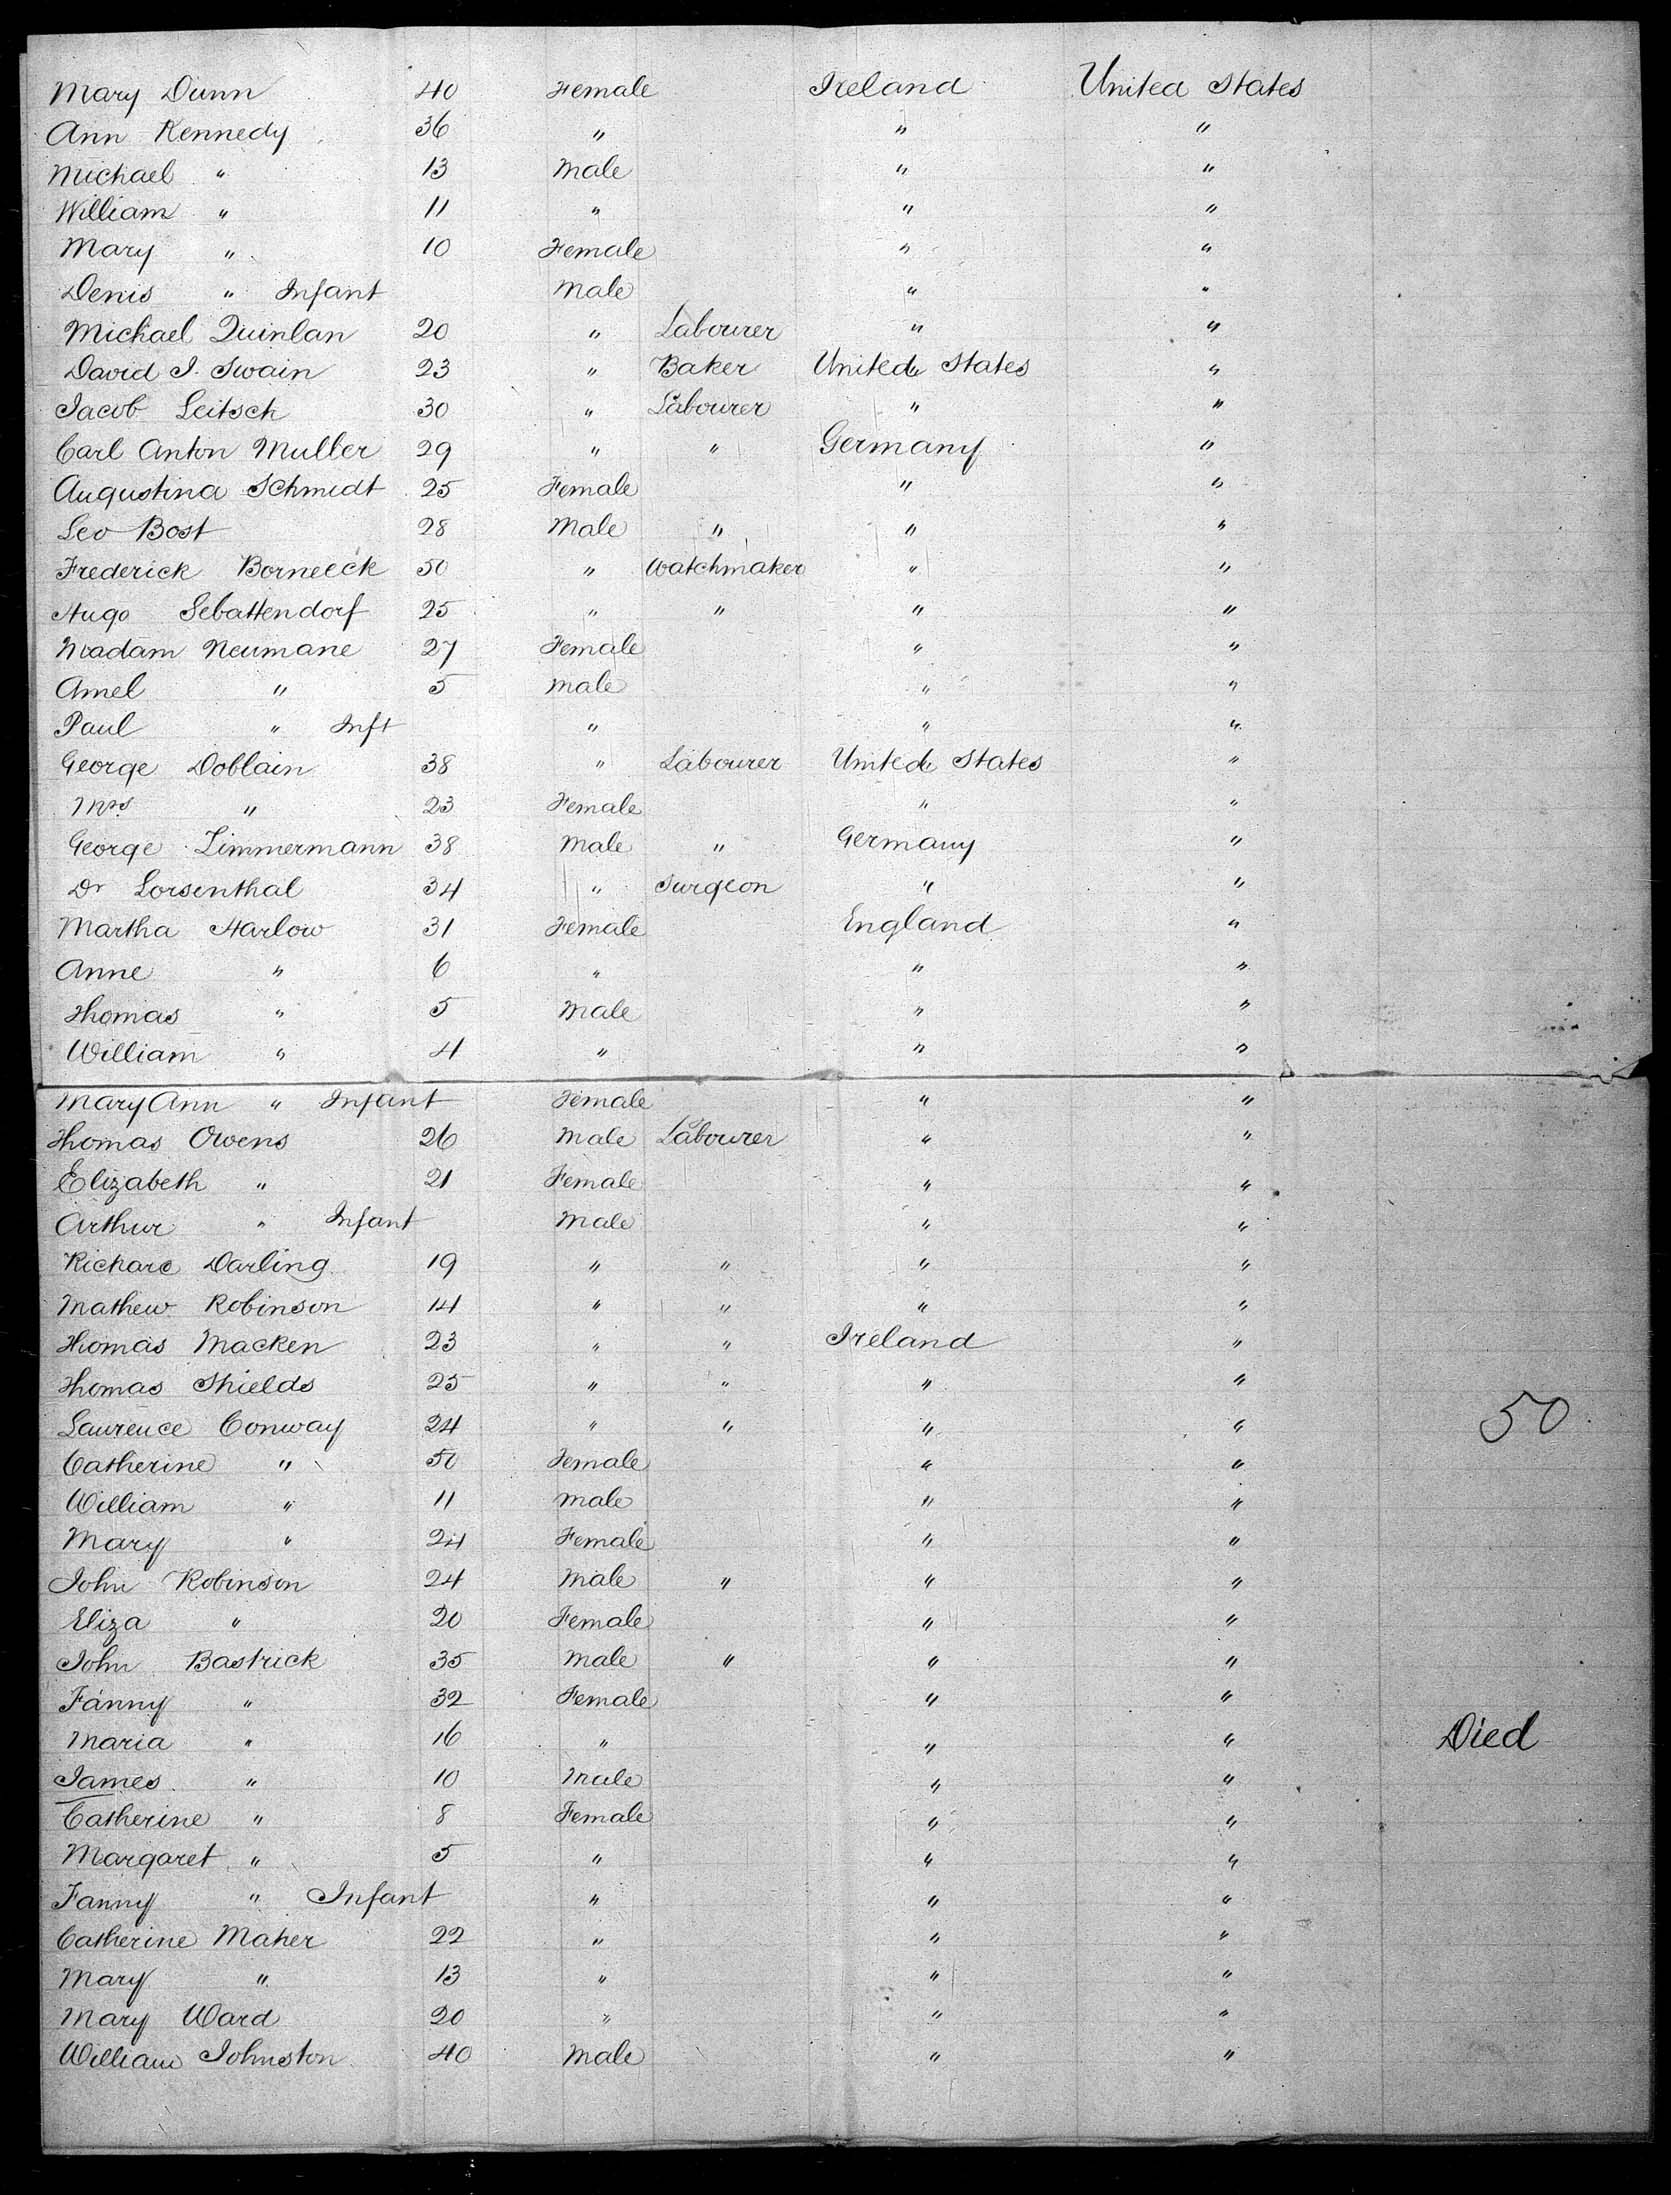 Mary Dunn 40 Female Ireland United States
Ann Kennedy 36 " " "
Michael " 13 Male " "
William " 11 " " "
Mary " 10 Female " "
Denis " Infant Male " "
Michael Quinlan 20 " Labourer " "
David I. Swain 23 " Baker United States "
Jacob Leitsch 30 " Labourer " "
Carl Anton Muller 29 " " Germany "
Augustina Schmidt 25 Female " "
Leo Bost 28 Male " " "
Frederick Borneeck 50 " Watchmaker " "
Hugo Sebattendorf 25 " " " "
Madam Neumane 27 Female " "
Amel " 5 Male " "
Paul " Inft " " "
George Doblain 38 " Labourer United States "
Mrs " 23 Female " "
George Zimmermann 38 Male " Germany "
Dr Lorsenthal 34 " Surgeon " "
Martha Harlow 31 Female England "
Anne " 6 " " "
Thomas " 5 Male " "
William " 4 " " "
Mary Ann " Infant Female " "
Thomas Owens 26 Male Labourer " "
Elizabeth " 21 Female " "
Arthur " Infant Male " "
Richard Darling 19 " " " "
Mathew Robinson 14 " " " "
Thomas Macken 23 " " Ireland "
Thomas Shields 25 " " " "
Laurence Conway 24 " " " " 50
Catherine " 50 Female " "
William " 11 Male " "
Mary " 24 Female " "
John Robinson 24 Male " " "
Eliza " 20 Female " "
John Bastrick 35 Male " " "
Fanny " 32 Female " "
Maria " 16 " " " Died
James " 10 Male " "
Catherine " 8 Female " "
Margaret " 5 " " "
Fanny " Infant " " "
Catherine Maher 22 " " "
Mary " 13 " " "
Mary Ward 20 " " "
William Johnston 40 Male " "